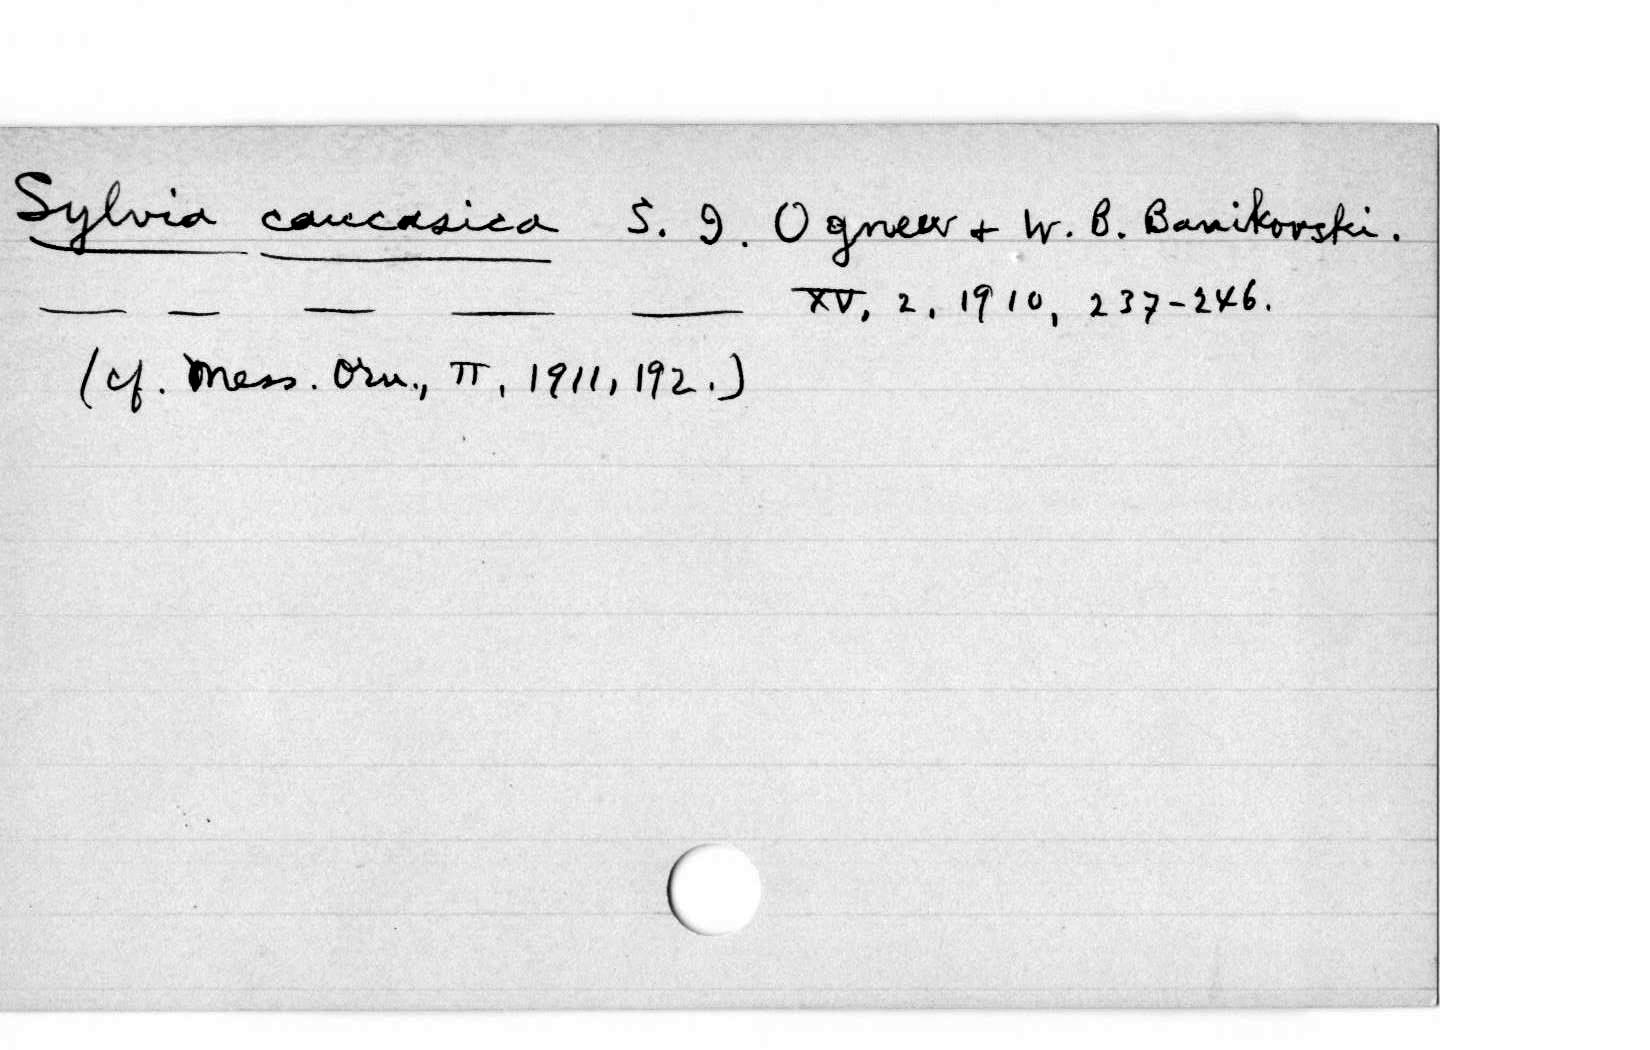 Sylvia caucasica S. I. Ognew + W. B. Banikovski.
— — — — — XV, 2, 1910, 237-246.
(cf. Mess. Orn., II, 1911, 192.)